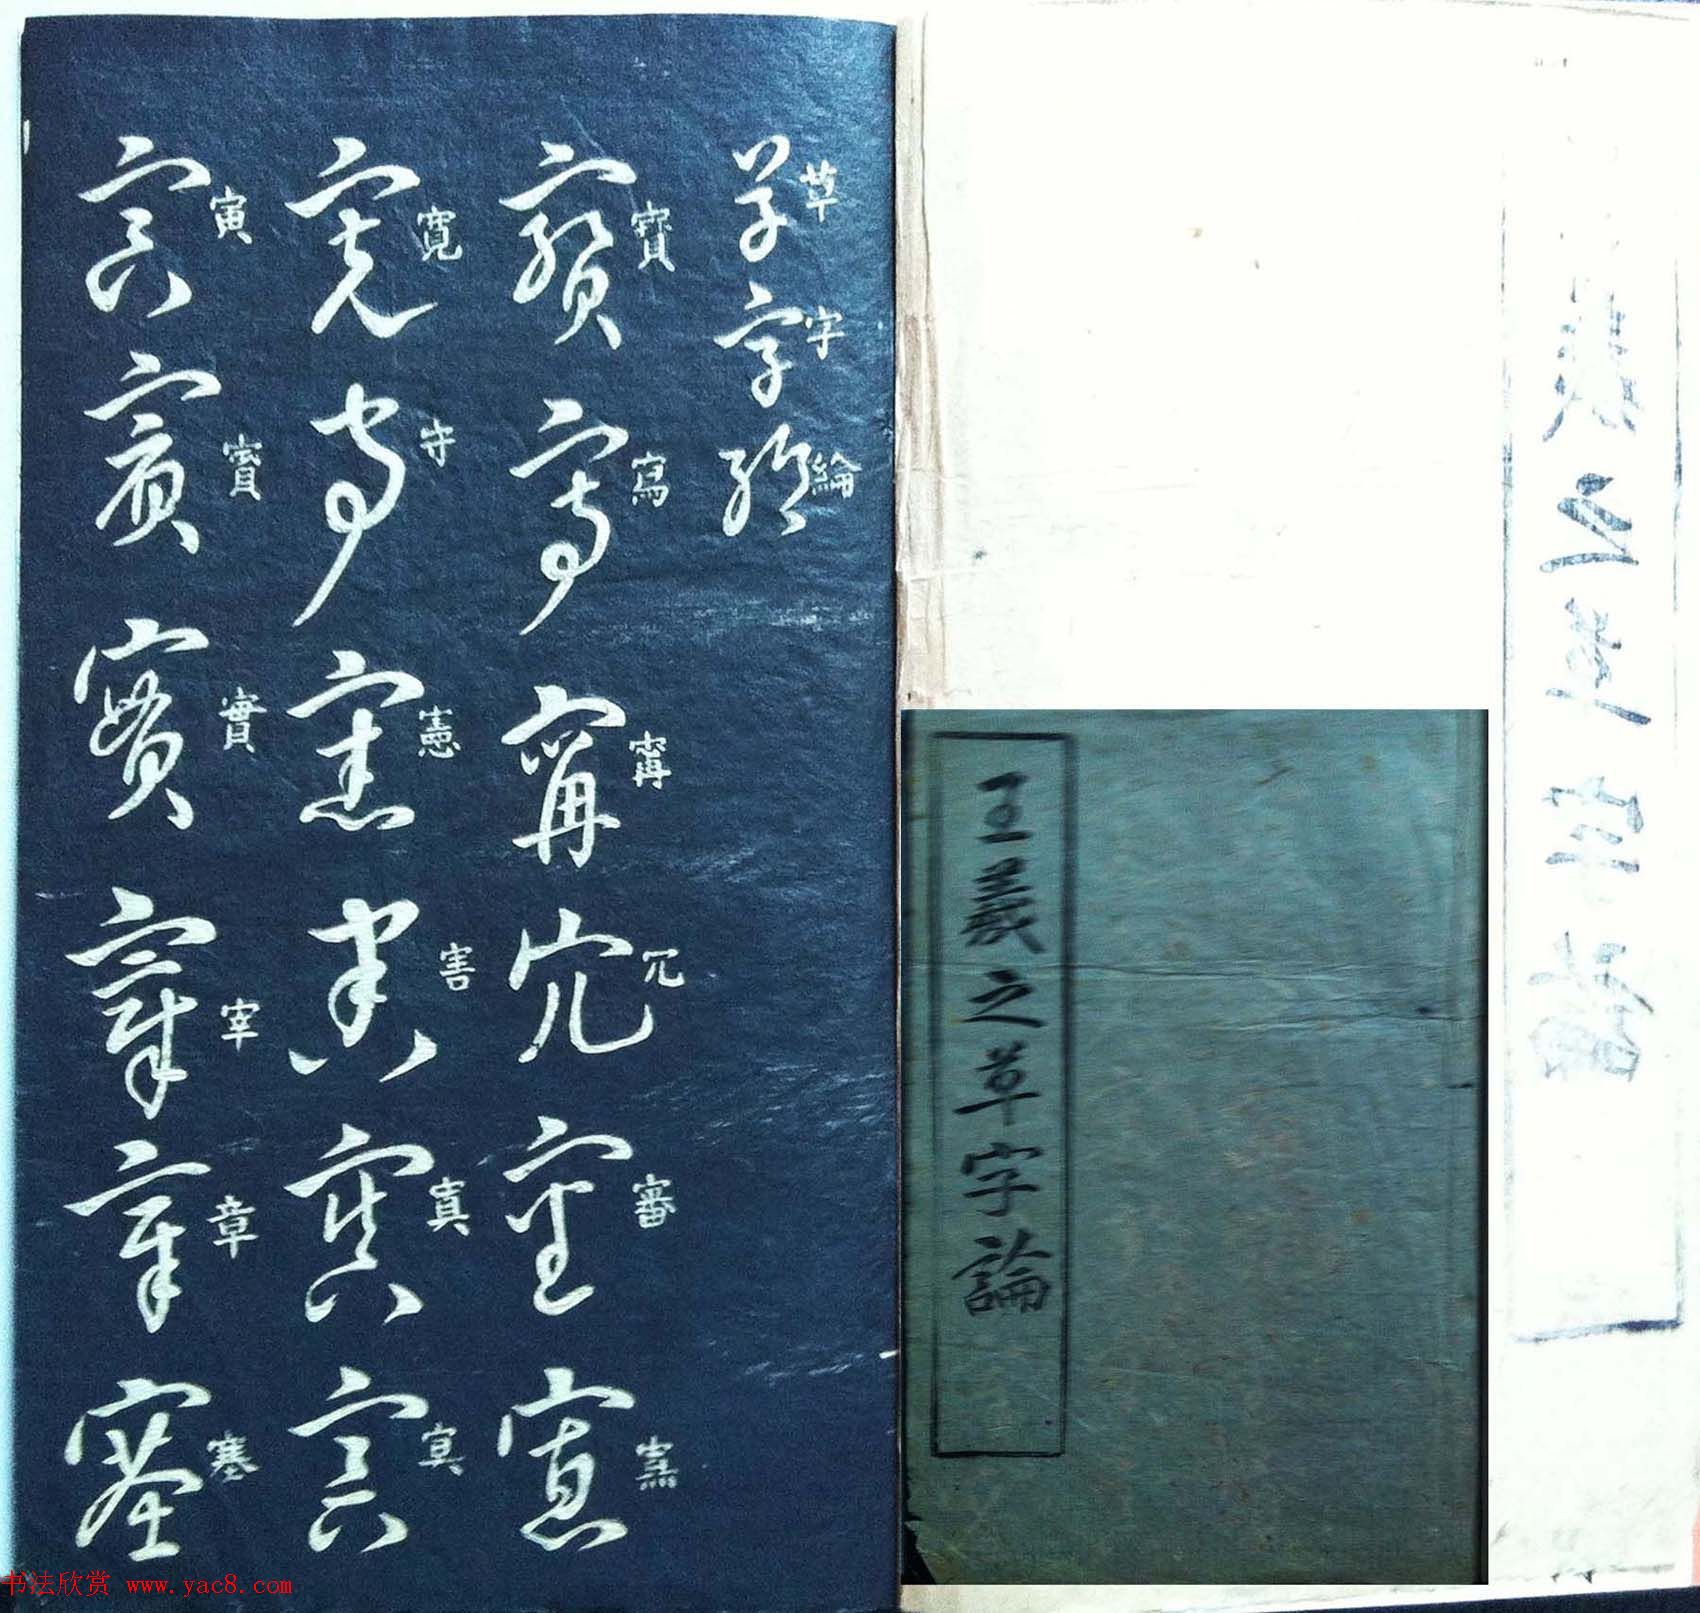 草字綸
寶寫寗冗審窯
寬守憲害真寞
寅賓實宰章塞
王羲之草字論
书法欣赏 www.yac8.com